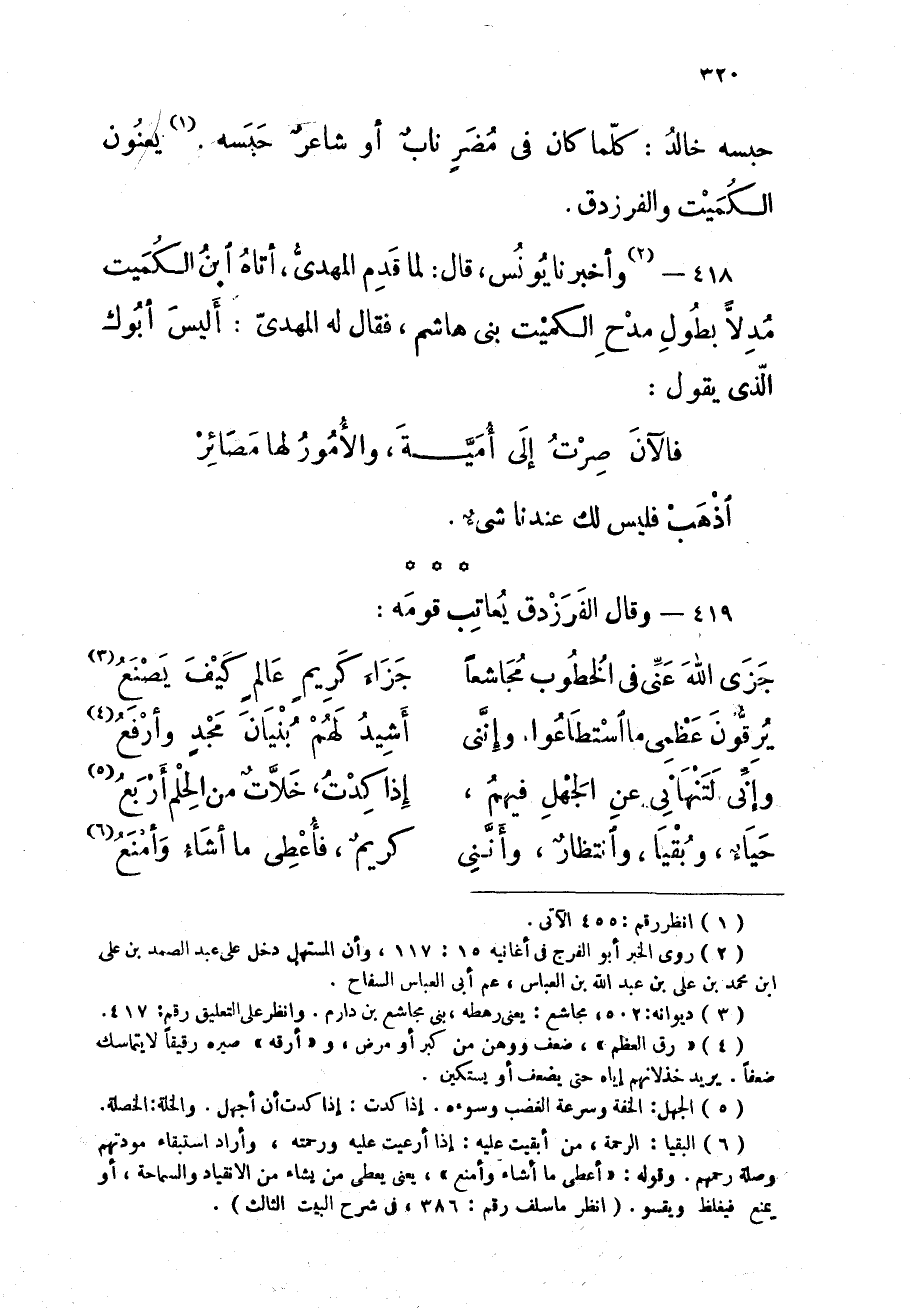 ٣٢٠
حبسه خالدُ : كلّما كان فى مُضَرٍ نابٌ أو شاعرٌ حَبَسه .(١) يَعنُون
الـكُمَيْت والفرزدق .
٤١٨ – (٢) وأخبرنا يُونُس، قال: لما قَدِم المهدىُّ، أتاهُ ٱبنُ الـكُمَيت
مُدِلاًّ بطُولِ مدْحِ الـكميْت بنى هاشم ، فقال له المهدىّ : أَليسَ أبُوك
الّذى يقول :
فالآنَ صِرْتُ إلَى أُمَيَّـــــةَ، والأُمُورُ لها مَصَائِرْ
ٱذْهَبْ فليس لك عندنا شىء .
* * *
٤١٩ – وقال الفَرَزْدق يُعاتِب قومَه :
جَزَى اللهُ عَنِّى فى الْخطُوب مُجَاشعاً جَزَاء كَرِيمٍ عَالمٍ كَيْفَ يَصْنَعُ(٣)
يُرِقُّونَ عَظْمِى ما ٱسْتطَاعُوا، وإنَّنى أَشِيدُ لَهُمْ بُنْيَانَ مَجْدٍ وأرْفَعُ(٤)
وإنِّى لَتَنْهَانِى عنِ الْجَهْلِ فيهِمُ ، إذا كِدْتُ، خَلاَّتٌ من الحِلْم أَرْبَعُ(٥)
حَيَاء ، وبُقْيَا ، وٱنتظارٌ ، وأَنَّنِى كريمٌ ، فأُعْطِى ما أشَاء وَأمْنَعُ(٦)
( ١ ) انظر رقم : ٤٥٥ الآتى .
( ٢ ) روى الخبر أبو الفرج فى أغانيه ١٥ : ١١٧ ، وأن المستهل دخل على عبد الصمد بن على
ابن محمد بن على بن عبد الله بن العباس ، عم أبى العباس السفاح .
( ٣ ) ديوانه: ٥٠٢، مجاشع : يعنى رهطه ، بنى مجاشع بن دارم . وانظر على التعليق رقم: ٤١٧.
( ٤ ) « رق العظم » ، ضعف ووهن من كبر أو مرض ، و « أرقه » صيره رقيقاً لا يتماسك
ضعفاً . يريد خذلانهم إياه حتى يضعف أو يستكين .
( ٥ ) الجهل: الخفة وسرعة الغضب وسوءه . إذا كدت : إذا كدت أن أجهل . والخلة: الخصلة.
( ٦ ) البقيا : الرحمة ، من أبقيت عليه : إذا أرعيت عليه ورحمته ، وأراد استبقاء مودتهم
وصلة رحمهم . وقوله : « أعطى ما أشاء وأمنع » ، يعنى يعطى من يشاء من الانقياد والسماحة ، أو
يمنع فيغلظ ويقسو . ( انظر ماسلف رقم : ٣٨٦ ، فى شرح البيت الثالث ) .